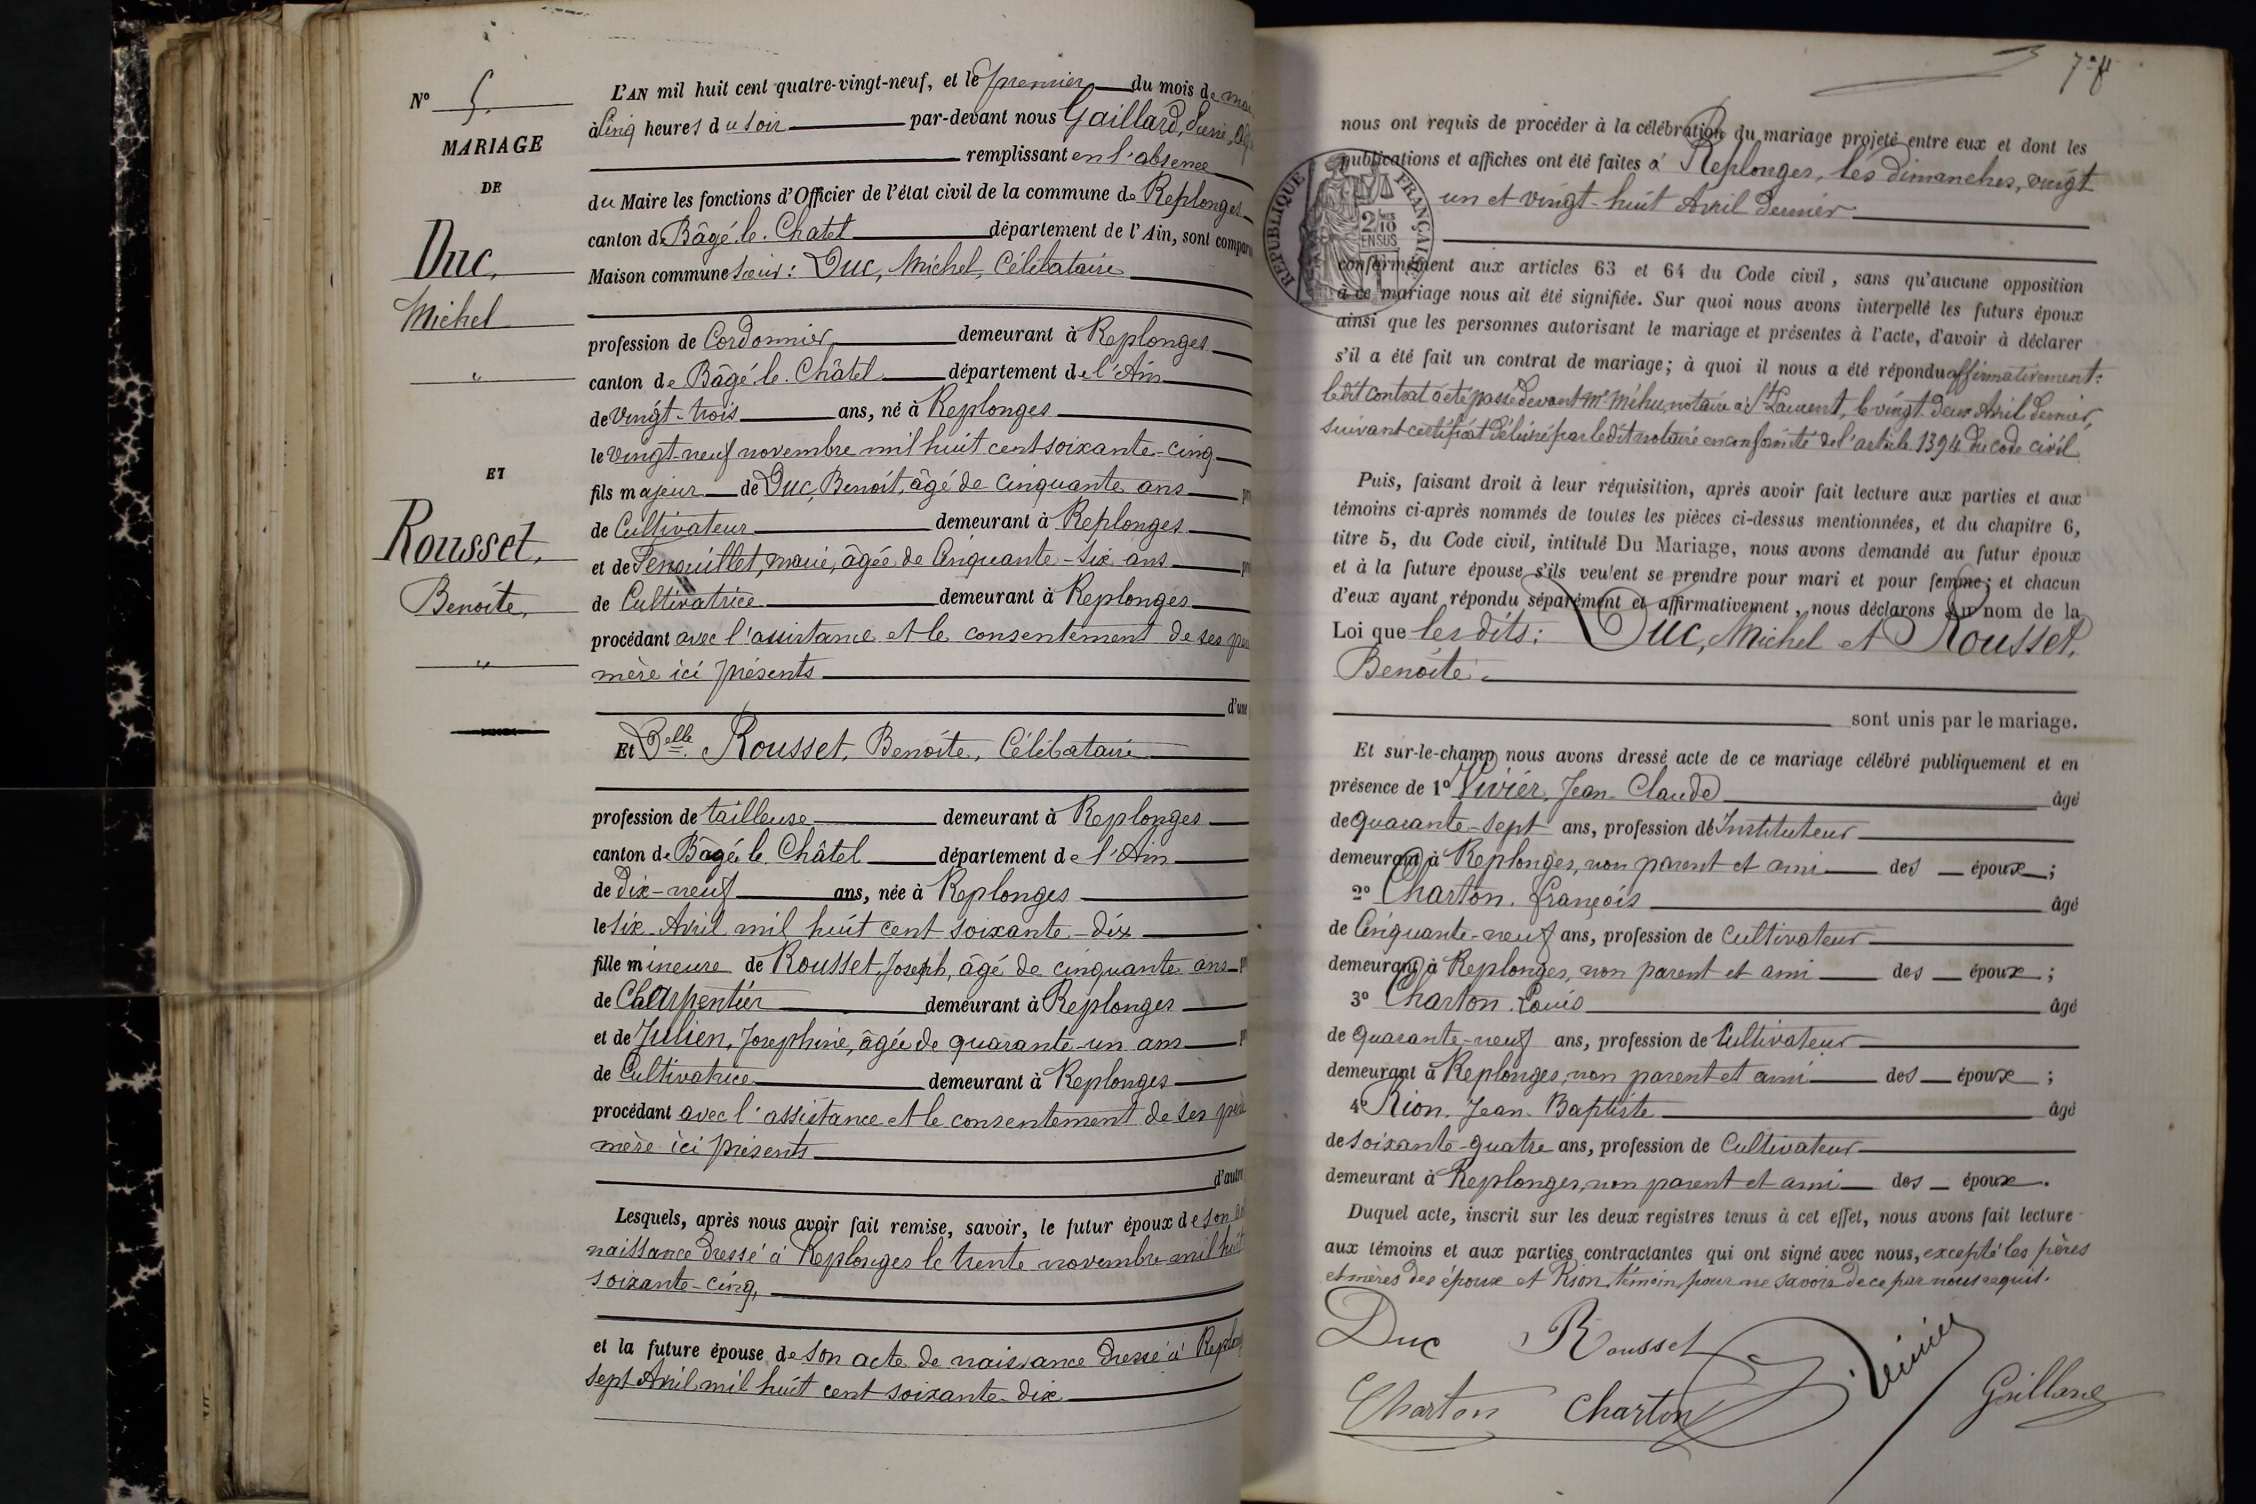 N° 5.
MARIAGE
DE
Duc,
Michel
"
ET
Rousset,
Benoite,
"
L'AN mil huit cent quatre-vingt-neuf, et le premier du mois de mai
à Cinq heures du soir par-devant nous Gaillard, Denis,
remplissant en l'absence
du Maire les fonctions d'Officier de l'état civil de la commune de Replonges
canton de Bâgé-le-Chatel département de l'Ain, sont comparu
Maison commune sieur : Duc, Michel, Célibataire
profession de Cordonnier demeurant à Replonges
canton de Bâgé-le-Châtel département de l'Ain
de vingt-trois ans, né à Replonges
le vingt-neuf novembre mil huit cent soixante-cinq
fils majeur de Duc, Benoit, âgé de cinquante ans
de Cultivateur demeurant à Replonges
et de Fenouillet, marie, âgée de Cinquante-six ans
de Cultivatrice demeurant à Replonges
procédant avec l'assistance et le consentement de ses
mère ici présents
d'une
Et Delle Rousset, Benoite, Célibataire
profession de tailleuse demeurant à Replonges
canton de Bâgé-le-Châtel département de l'Ain
de dix-neuf ans, née à Replonges
le six Avril mil huit cent soixante-dix
fille mineure de Rousset, Joseph, âgé de cinquante ans
de Charpentier demeurant à Replonges
et de Julien, Josephine, âgée de quarante-un ans
de Cultivatrice demeurant à Replonges
procédant avec l'assistance et le consentement de ses père
mère ici présents
d'autre
Lesquels, après nous avoir fait remise, savoir, le futur époux de son
naissance dressé à Replonges le trente novembre mil huit
soixante-cinq,
et la future épouse de son acte de naissance dressé à
sept Avril mil huit cent soixante-dix
nous ont requis de procéder à la célébration du mariage projeté entre eux et dont les
publications et affiches ont été faites à Replonges, les dimanches, vingt
un et vingt-huit Avril dernier
RÉPUBLIQUE FRANÇAISE
2/10
EN SUS
conformément aux articles 63 et 64 du Code civil, sans qu'aucune opposition
à ce mariage nous ait été signifiée. Sur quoi nous avons interpellé les futurs époux
ainsi que les personnes autorisant le mariage et présentes à l'acte, d'avoir à déclarer
s'il a été fait un contrat de mariage; à quoi il nous a été répondu affirmativement :
ledit contrat a été passé devant Me Méhu, notaire à St Laurent, le vingt-deux Avril dernier,
suivant certificat délivré par ledit notaire en conformité de l'article 1394 du code civil
Puis, faisant droit à leur réquisition, après avoir fait lecture aux parties et aux
témoins ci-après nommés de toutes les pièces ci-dessus mentionnées, et du chapitre 6,
titre 5, du Code civil, intitulé Du Mariage, nous avons demandé au futur époux
et à la future épouse s'ils veulent se prendre pour mari et pour femme; et chacun
d'eux ayant répondu séparément et affirmativement, nous déclarons au nom de la
Loi que les dits : Duc, Michel et Rousset,
Benoite.
sont unis par le mariage.
Et sur-le-champ nous avons dressé acte de ce mariage célébré publiquement et en
présence de 1° Vivier, Jean-Claude âgé
de quarante-sept ans, profession d'Instituteur
demeurant à Replonges, non parent et ami des époux ;
2° Charton, François âgé
de Cinquante-neuf ans, profession de Cultivateur
demeurant à Replonges, non parent et ami des époux ;
3° Charton, Louis âgé
de quarante-neuf ans, profession de Cultivateur
demeurant à Replonges, non parent et ami des époux ;
4° Rion, Jean-Baptiste âgé
de soixante-quatre ans, profession de Cultivateur
demeurant à Replonges, non parent et ami des époux.
Duquel acte, inscrit sur les deux registres tenus à cet effet, nous avons fait lecture
aux témoins et aux parties contractantes qui ont signé avec nous, excepté les pères
et mères des époux et Rion, témoin, pour ne savoir de ce par nous requis.
Duc Rousset Vivier
Charton Charton Gaillard